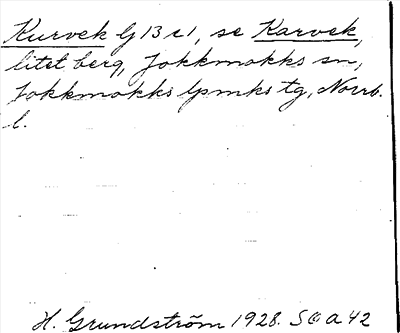 Kurvek lj 13 c1, se Karvek,
litet berg, Jokkmokks sn,
Jokkmokks lpmks tg, Norrb.
l.
H. Grundström 1928. SOA 42